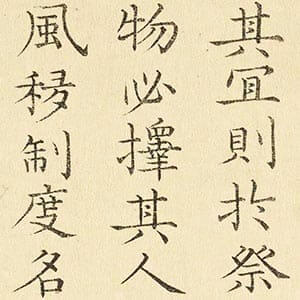 其冝則於祭
物必擇其人
風移制度名